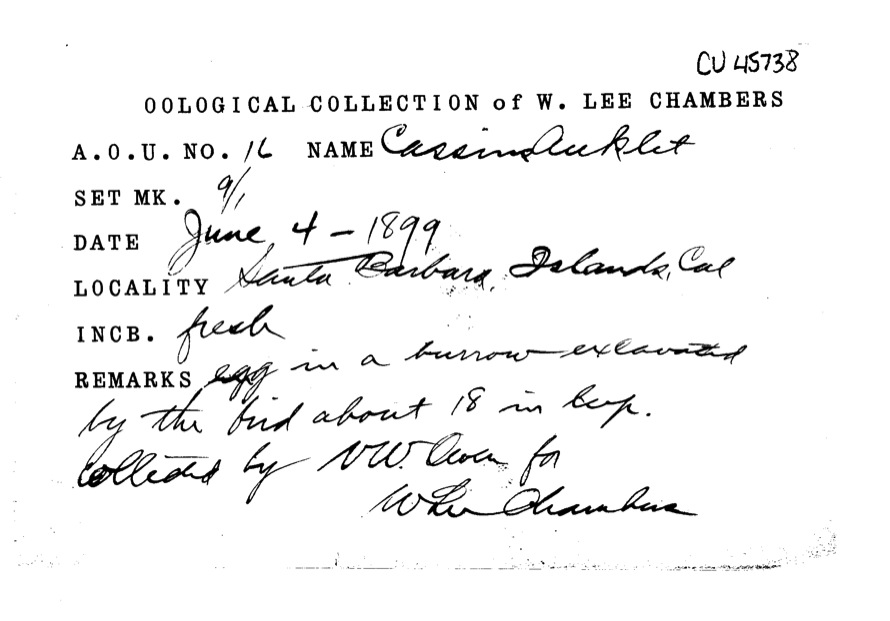 CU 45738
OOLOGICAL COLLECTION of W. LEE CHAMBERS
A.O.U. NO. 16 NAME Cassins Auklet
SET MK. 9/1
DATE June 4 - 1899
LOCALITY Santa Barbara, Islands, Cal
INCB. fresh
REMARKS egg in a burrow excavated
by the bird about 18 in deep.
Collected by V.W. Owen for
W Lee Chambers